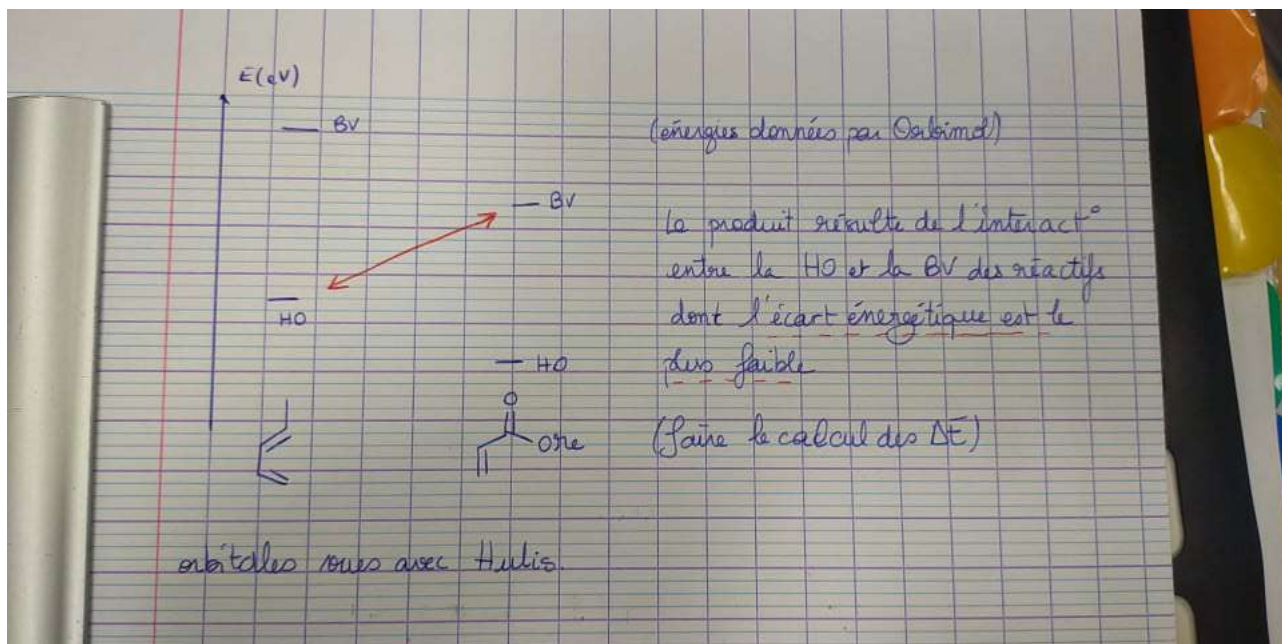 E(eV)
BV
(énergies données par Orbimol)
BV
Le produit résulte de l'interact°
entre la HO et la BV des réactifs
HO
dont l'écart énergétique est le
plus faible
HO
O
OMe
(faire le calcul des ΔE)
orbitales vues avec Hulis.